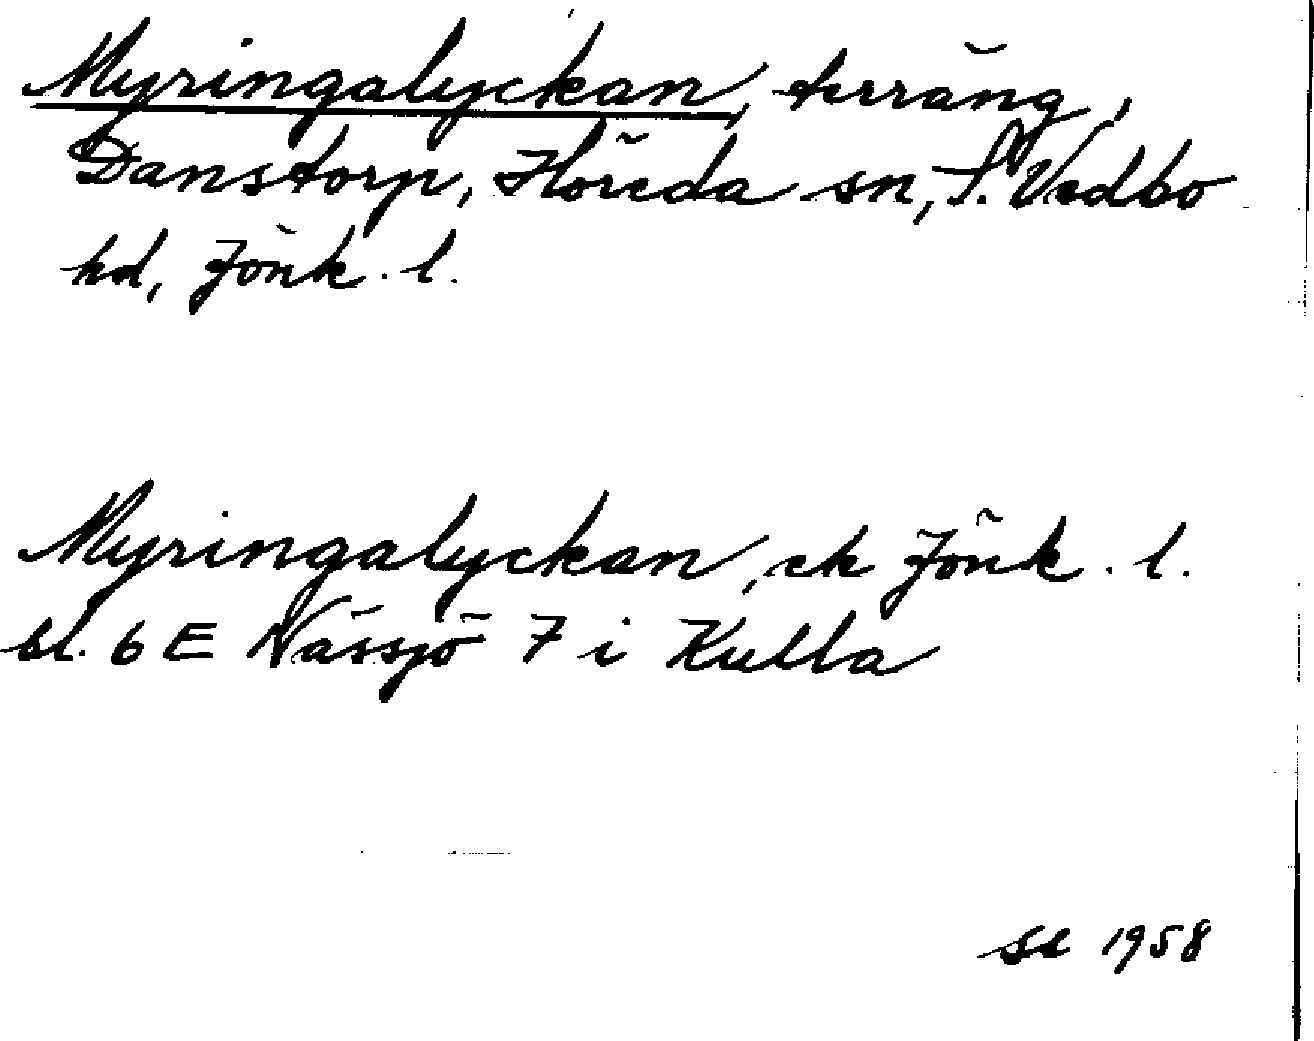 Myringalyckan, terräng,
Danstorp, Höreda sn, S. Vedbo
hd, Jönk. l.
Myringalyckan, ek Jönk. l.
bl. 6 E Nässjö 7 i Kulla
se 1958